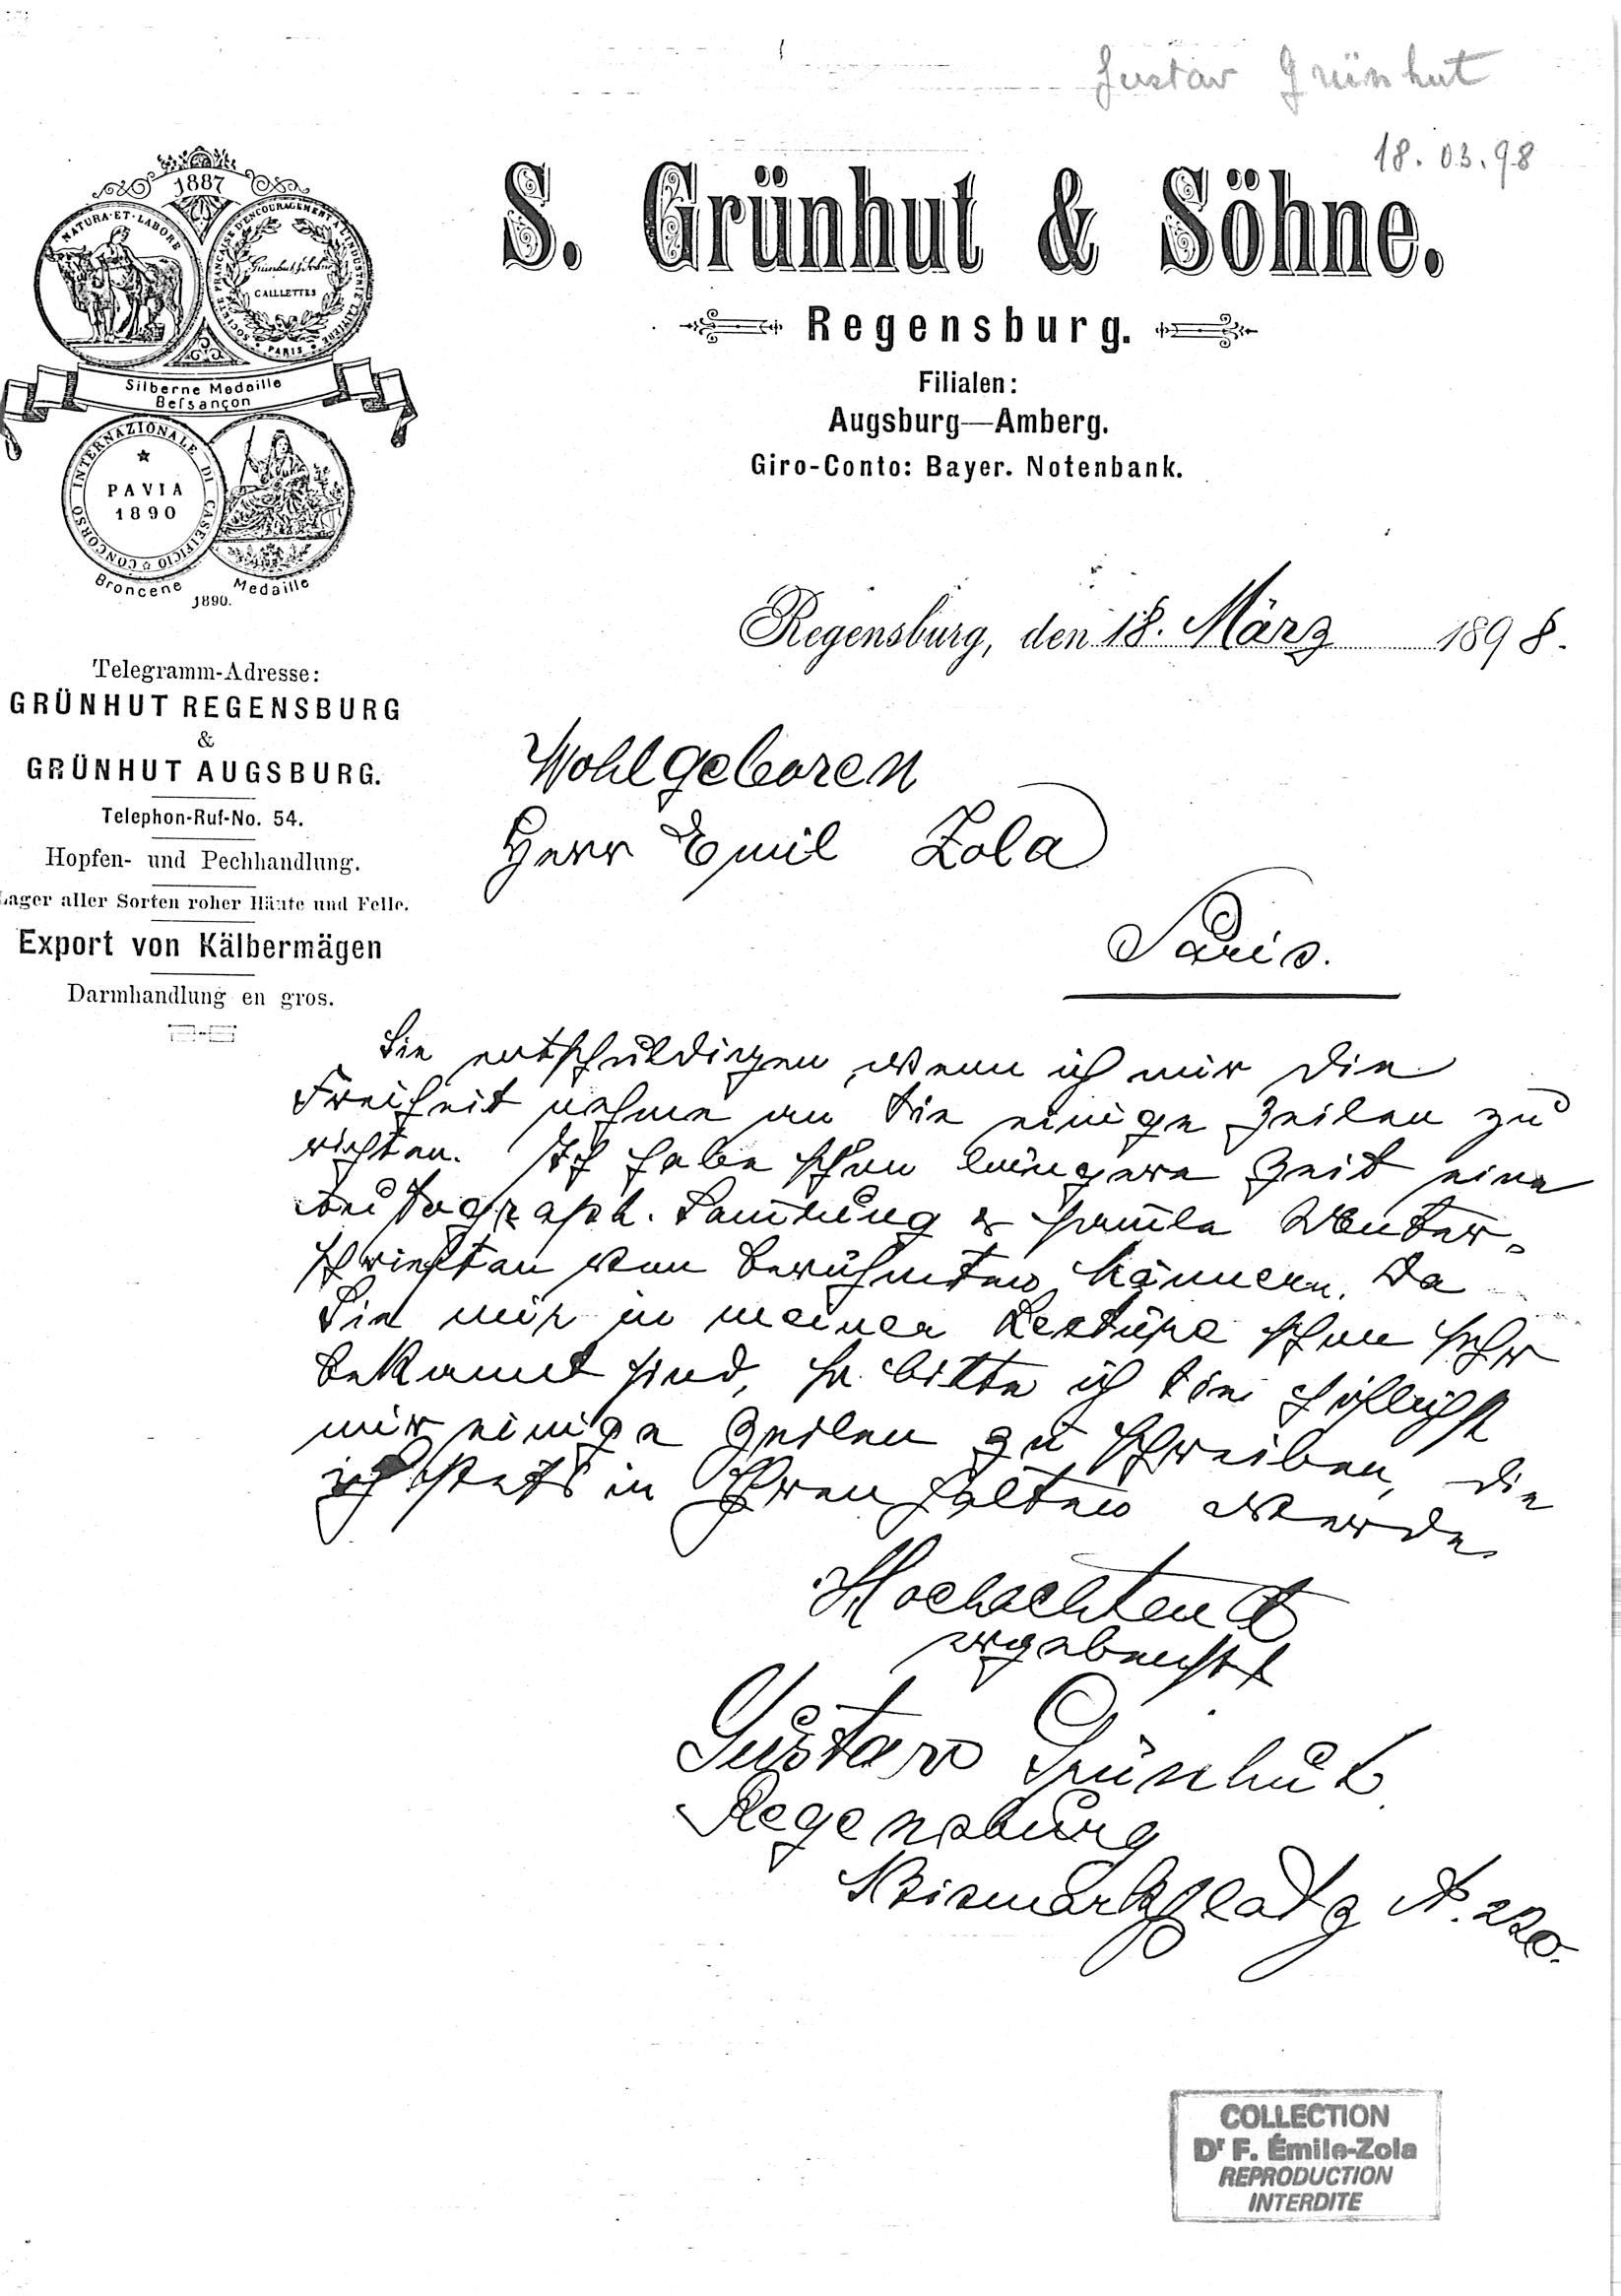 Gustav Grünhut
18.03.98
1887
NATURA·ET·LABORE
SOCIÉTÉ FRANÇAISE D'ENCOURAGEMENT À L'INDUSTRIE LAITIÈRE
CAILLETTES
PARIS
Silberne Medaille
Besançon
CONCORSO INTERNAZIONALE DI CASEIFICIO
PAVIA
1890
Broncene Medaille
1890.
S. Grünhut & Söhne.
Regensburg.
Filialen:
Augsburg—Amberg.
Giro-Conto: Bayer. Notenbank.
Regensburg, den 18. März 1898.
Telegramm-Adresse:
GRÜNHUT REGENSBURG
&
GRÜNHUT AUGSBURG.
Telephon-Ruf-No. 54.
Hopfen- und Pechhandlung.
Lager aller Sorten roher Häute und Felle.
Export von Kälbermägen
Darmhandlung en gros.
Wohlgeboren
Herr Emil Zola
Paris.
Sie entschuldigen, wenn ich mir die
Freiheit nehme an Sie einige Zeilen zu
richten. Ich habe schon längere Zeit eine
Autograph. Sammlung & samle Unter-
schriften von berühmten Männern. Da
Sie mir in meiner Lectüre schon sehr
bekannt sind, so bitte ich Sie höflichst
mir einige Zeilen zu schreiben, die
ich stets in Ehren halten werde.
Hochachtend
ergebenst
Gustav Grünhut.
Regensburg
Bismarkplatz A. 220.
COLLECTION
Dr F. Émile-Zola
REPRODUCTION
INTERDITE